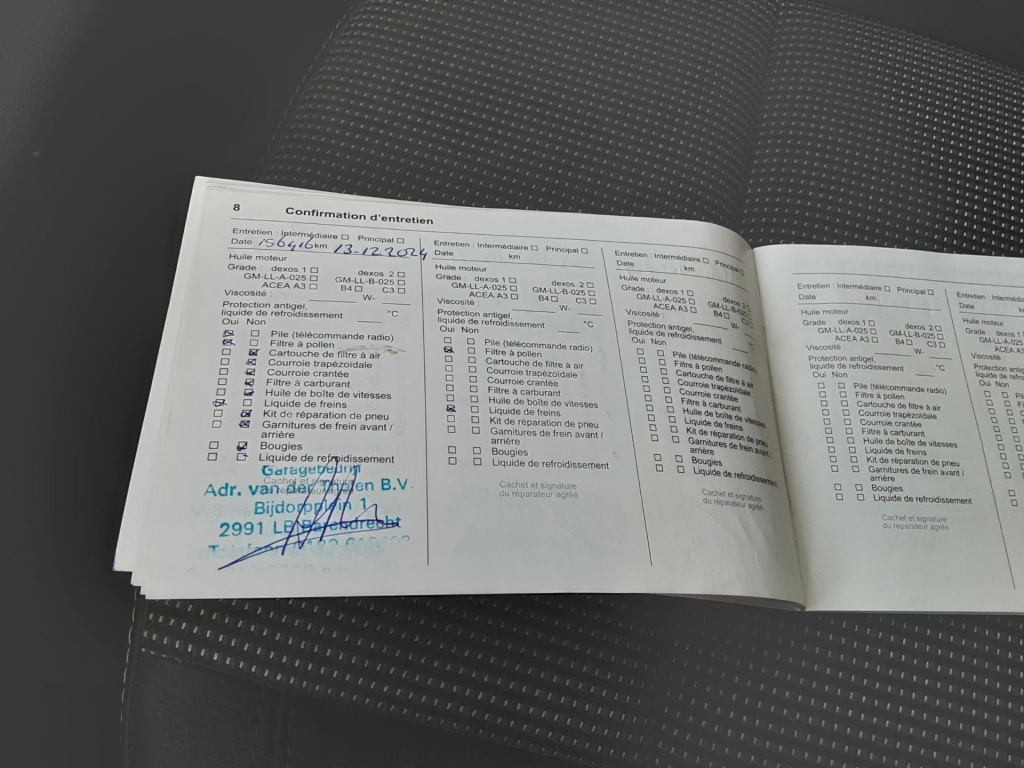 8 Confirmation d'entretien
Entretien : Intermédiaire ☐ Principal ☐
Date 156416 km 13-12 2024
Huile moteur
Grade : dexos 1 ☐ dexos 2 ☐
GM-LL-A-025 ☐ GM-LL-B-025 ☐
ACEA A3 ☐ B4 ☐ C3 ☐
Viscosité : W-
Protection antigel,
liquide de refroidissement °C
Oui Non
☒ ☐ Pile (télécommande radio)
☒ ☐ Filtre à pollen
☐ ☒ Cartouche de filtre à air
☐ ☒ Courroie trapézoïdale
☐ ☒ Courroie crantée
☐ ☒ Filtre à carburant
☐ ☒ Huile de boîte de vitesses
☒ ☐ Liquide de freins
☐ ☒ Kit de réparation de pneu
☐ ☒ Garnitures de frein avant /
arrière
☐ ☒ Bougies
☐ ☐ Liquide de refroidissement
Cachet et signature
du réparateur agréé
Garagebedrijf
Adr. van der Tholen B.V.
Bijdorpplein 1
2991 LB Barendrecht
Entretien : Intermédiaire ☐ Principal ☐
Date km
Huile moteur
Grade : dexos 1 ☐ dexos 2 ☐
GM-LL-A-025 ☐ GM-LL-B-025 ☐
ACEA A3 ☐ B4 ☐ C3 ☐
Viscosité : W-
Protection antigel,
liquide de refroidissement °C
Oui Non
☐ ☐ Pile (télécommande radio)
☒ ☐ Filtre à pollen
☐ ☐ Cartouche de filtre à air
☐ ☐ Courroie trapézoïdale
☐ ☐ Courroie crantée
☐ ☐ Filtre à carburant
☐ ☐ Huile de boîte de vitesses
☒ ☐ Liquide de freins
☐ ☐ Kit de réparation de pneu
☐ ☐ Garnitures de frein avant /
arrière
☐ ☐ Bougies
☐ ☐ Liquide de refroidissement
Cachet et signature
du réparateur agréé
Entretien : Intermédiaire ☐ Principal ☐
Date km
Huile moteur
Grade : dexos 1 ☐ dexos 2
GM-LL-A-025 ☐ GM-LL-B-025
ACEA A3 ☐ B4 ☐ C3 ☐
Viscosité : W-
Protection antigel,
liquide de refroidissement
Oui Non
☐ ☐ Pile (télécommande radio)
☐ ☐ Filtre à pollen
☐ ☐ Cartouche de filtre à air
☐ ☐ Courroie trapézoïdale
☐ ☐ Courroie crantée
☐ ☐ Filtre à carburant
☐ ☐ Huile de boîte de vitesses
☐ ☐ Liquide de freins
☐ ☐ Kit de réparation de pneu
☐ ☐ Garnitures de frein avant /
arrière
☐ ☐ Bougies
☐ ☐ Liquide de refroidissement
Cachet et signature
du réparateur agréé
Entretien : Intermédiaire ☐ Principal ☐
Date km
Huile moteur
Grade : dexos 1 ☐ dexos 2 ☐
GM-LL-A-025 ☐ GM-LL-B-025 ☐
ACEA A3 ☐ B4 ☐ C3 ☐
Viscosité : W-
Protection antigel,
liquide de refroidissement °C
Oui Non
☐ ☐ Pile (télécommande radio)
☐ ☐ Filtre à pollen
☐ ☐ Cartouche de filtre à air
☐ ☐ Courroie trapézoïdale
☐ ☐ Courroie crantée
☐ ☐ Filtre à carburant
☐ ☐ Huile de boîte de vitesses
☐ ☐ Liquide de freins
☐ ☐ Kit de réparation de pneu
☐ ☐ Garnitures de frein avant /
arrière
☐ ☐ Bougies
☐ ☐ Liquide de refroidissement
Cachet et signature
du réparateur agréé
Entretien :
Date
Huile moteur
Grade : dexos 1
GM-LL-A-025
ACEA A3
Viscosité :
Protection
liquide de
Oui Non